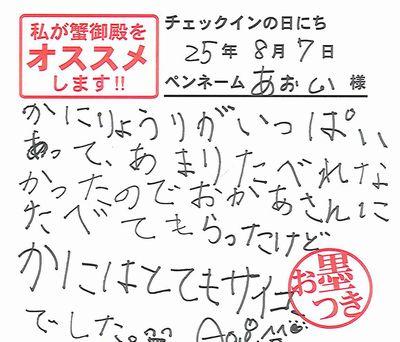 私が蟹御殿を
オススメ
します!!
チェックインの日にち
25年 8月 7日
ペンネーム あおい 様
かにりょうりがいっぱい
あって、あまりたべれな
かったのでおかあさんに
たべてもらったけど
かにはとてもサイコー
でした。
お墨つき